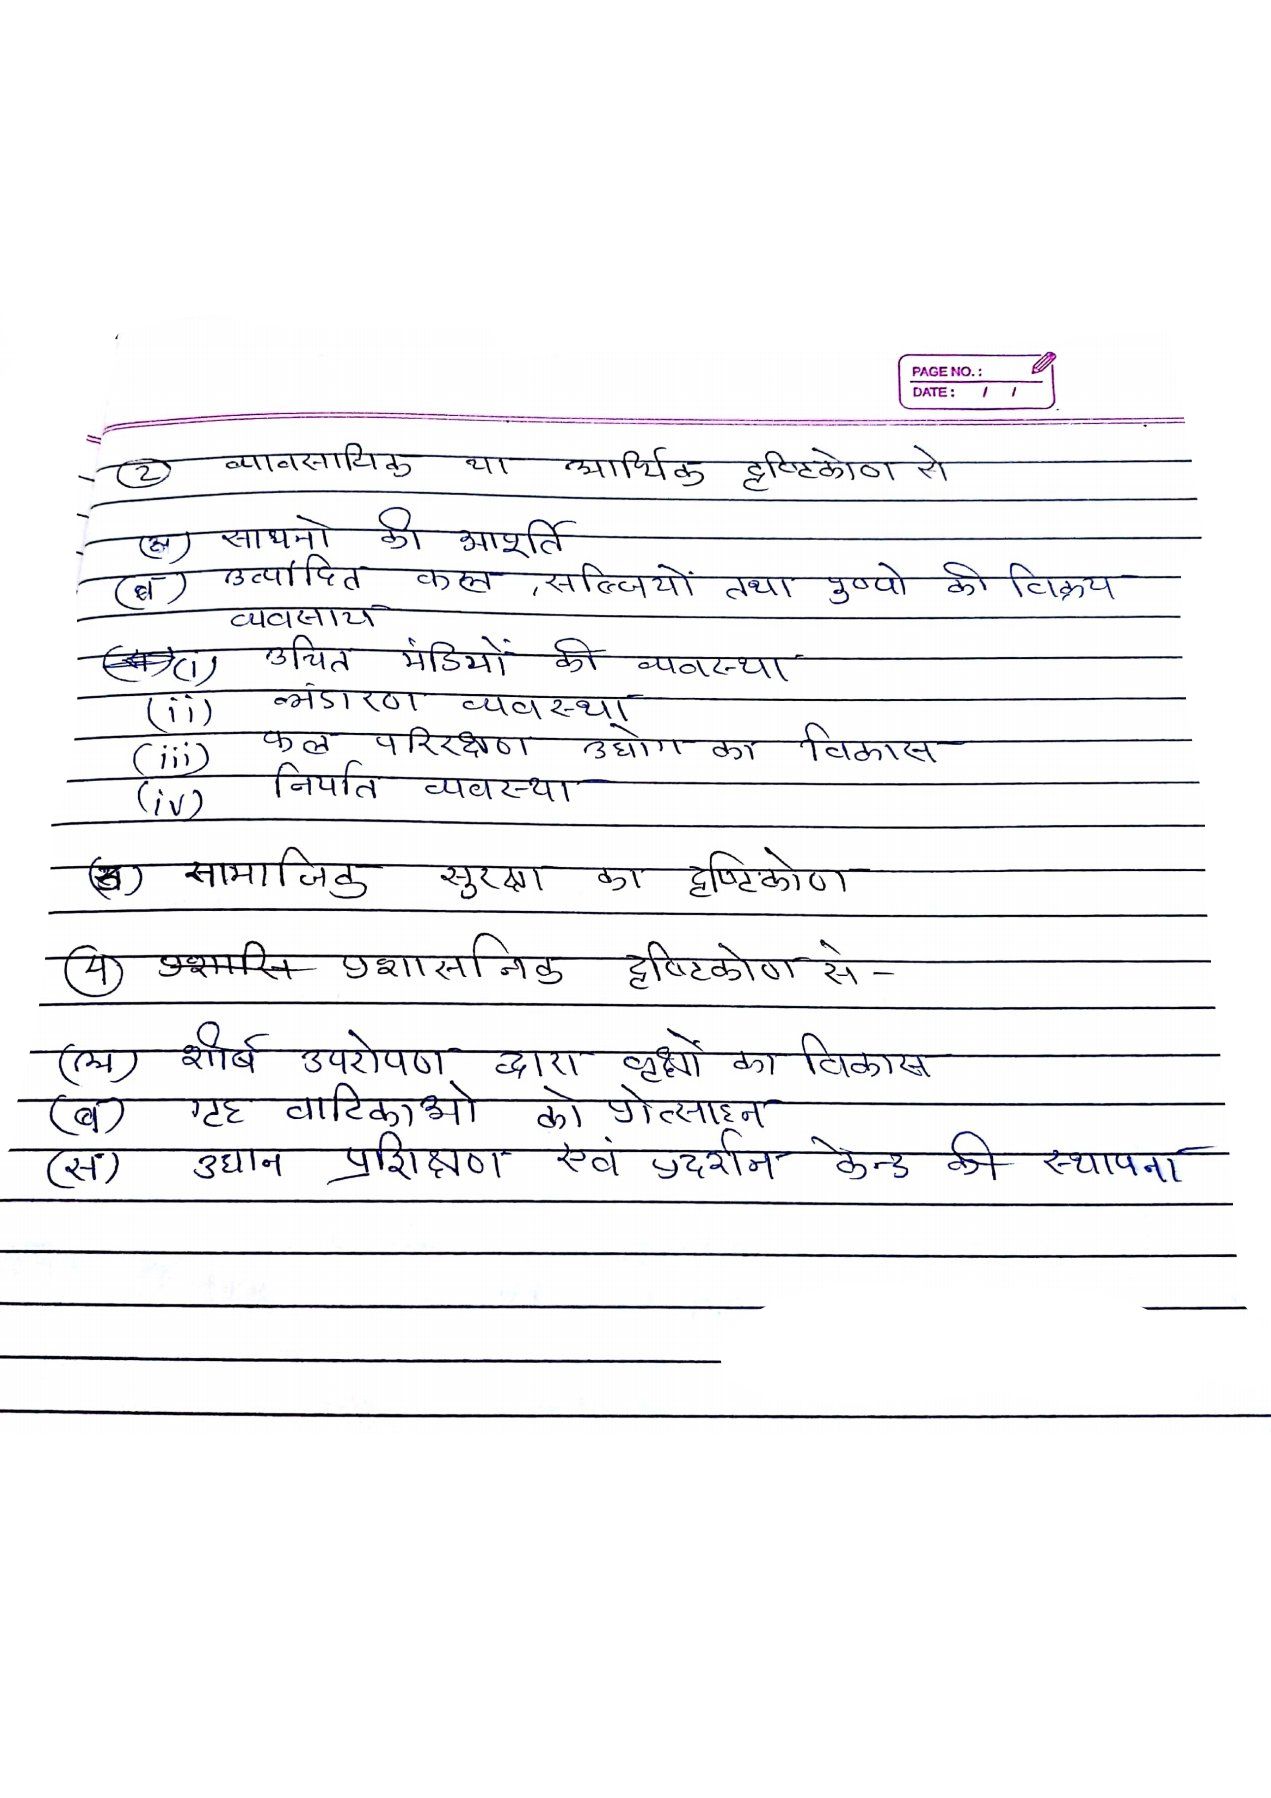 PAGE NO.:
DATE: / /
(2) व्यावसायिक या आर्थिक दृष्टिकोण से
(अ) साधनो की आपूर्ति
(ब) उत्पादित फल, सब्जियों तथा पुष्पो की विक्रय
व्यवसाय
(i) उचित मंडियों की व्यवस्था
(ii) भंडारण व्यवस्था
(iii) फल परिरक्षण उद्योग का विकास
(iv) निर्यात व्यवस्था
(3) सामाजिक सुरक्षा का दृष्टिकोण
(4) प्रशासि प्रशासनिक दृष्टिकोण से -
(अ) शीर्ष उपरोपण द्वारा वृक्षों का विकास
(ब) गृह वाटिकाओ को प्रोत्साहन
(स) उद्यान प्रशिक्षण एवं प्रदर्शन केन्द्र की स्थापना